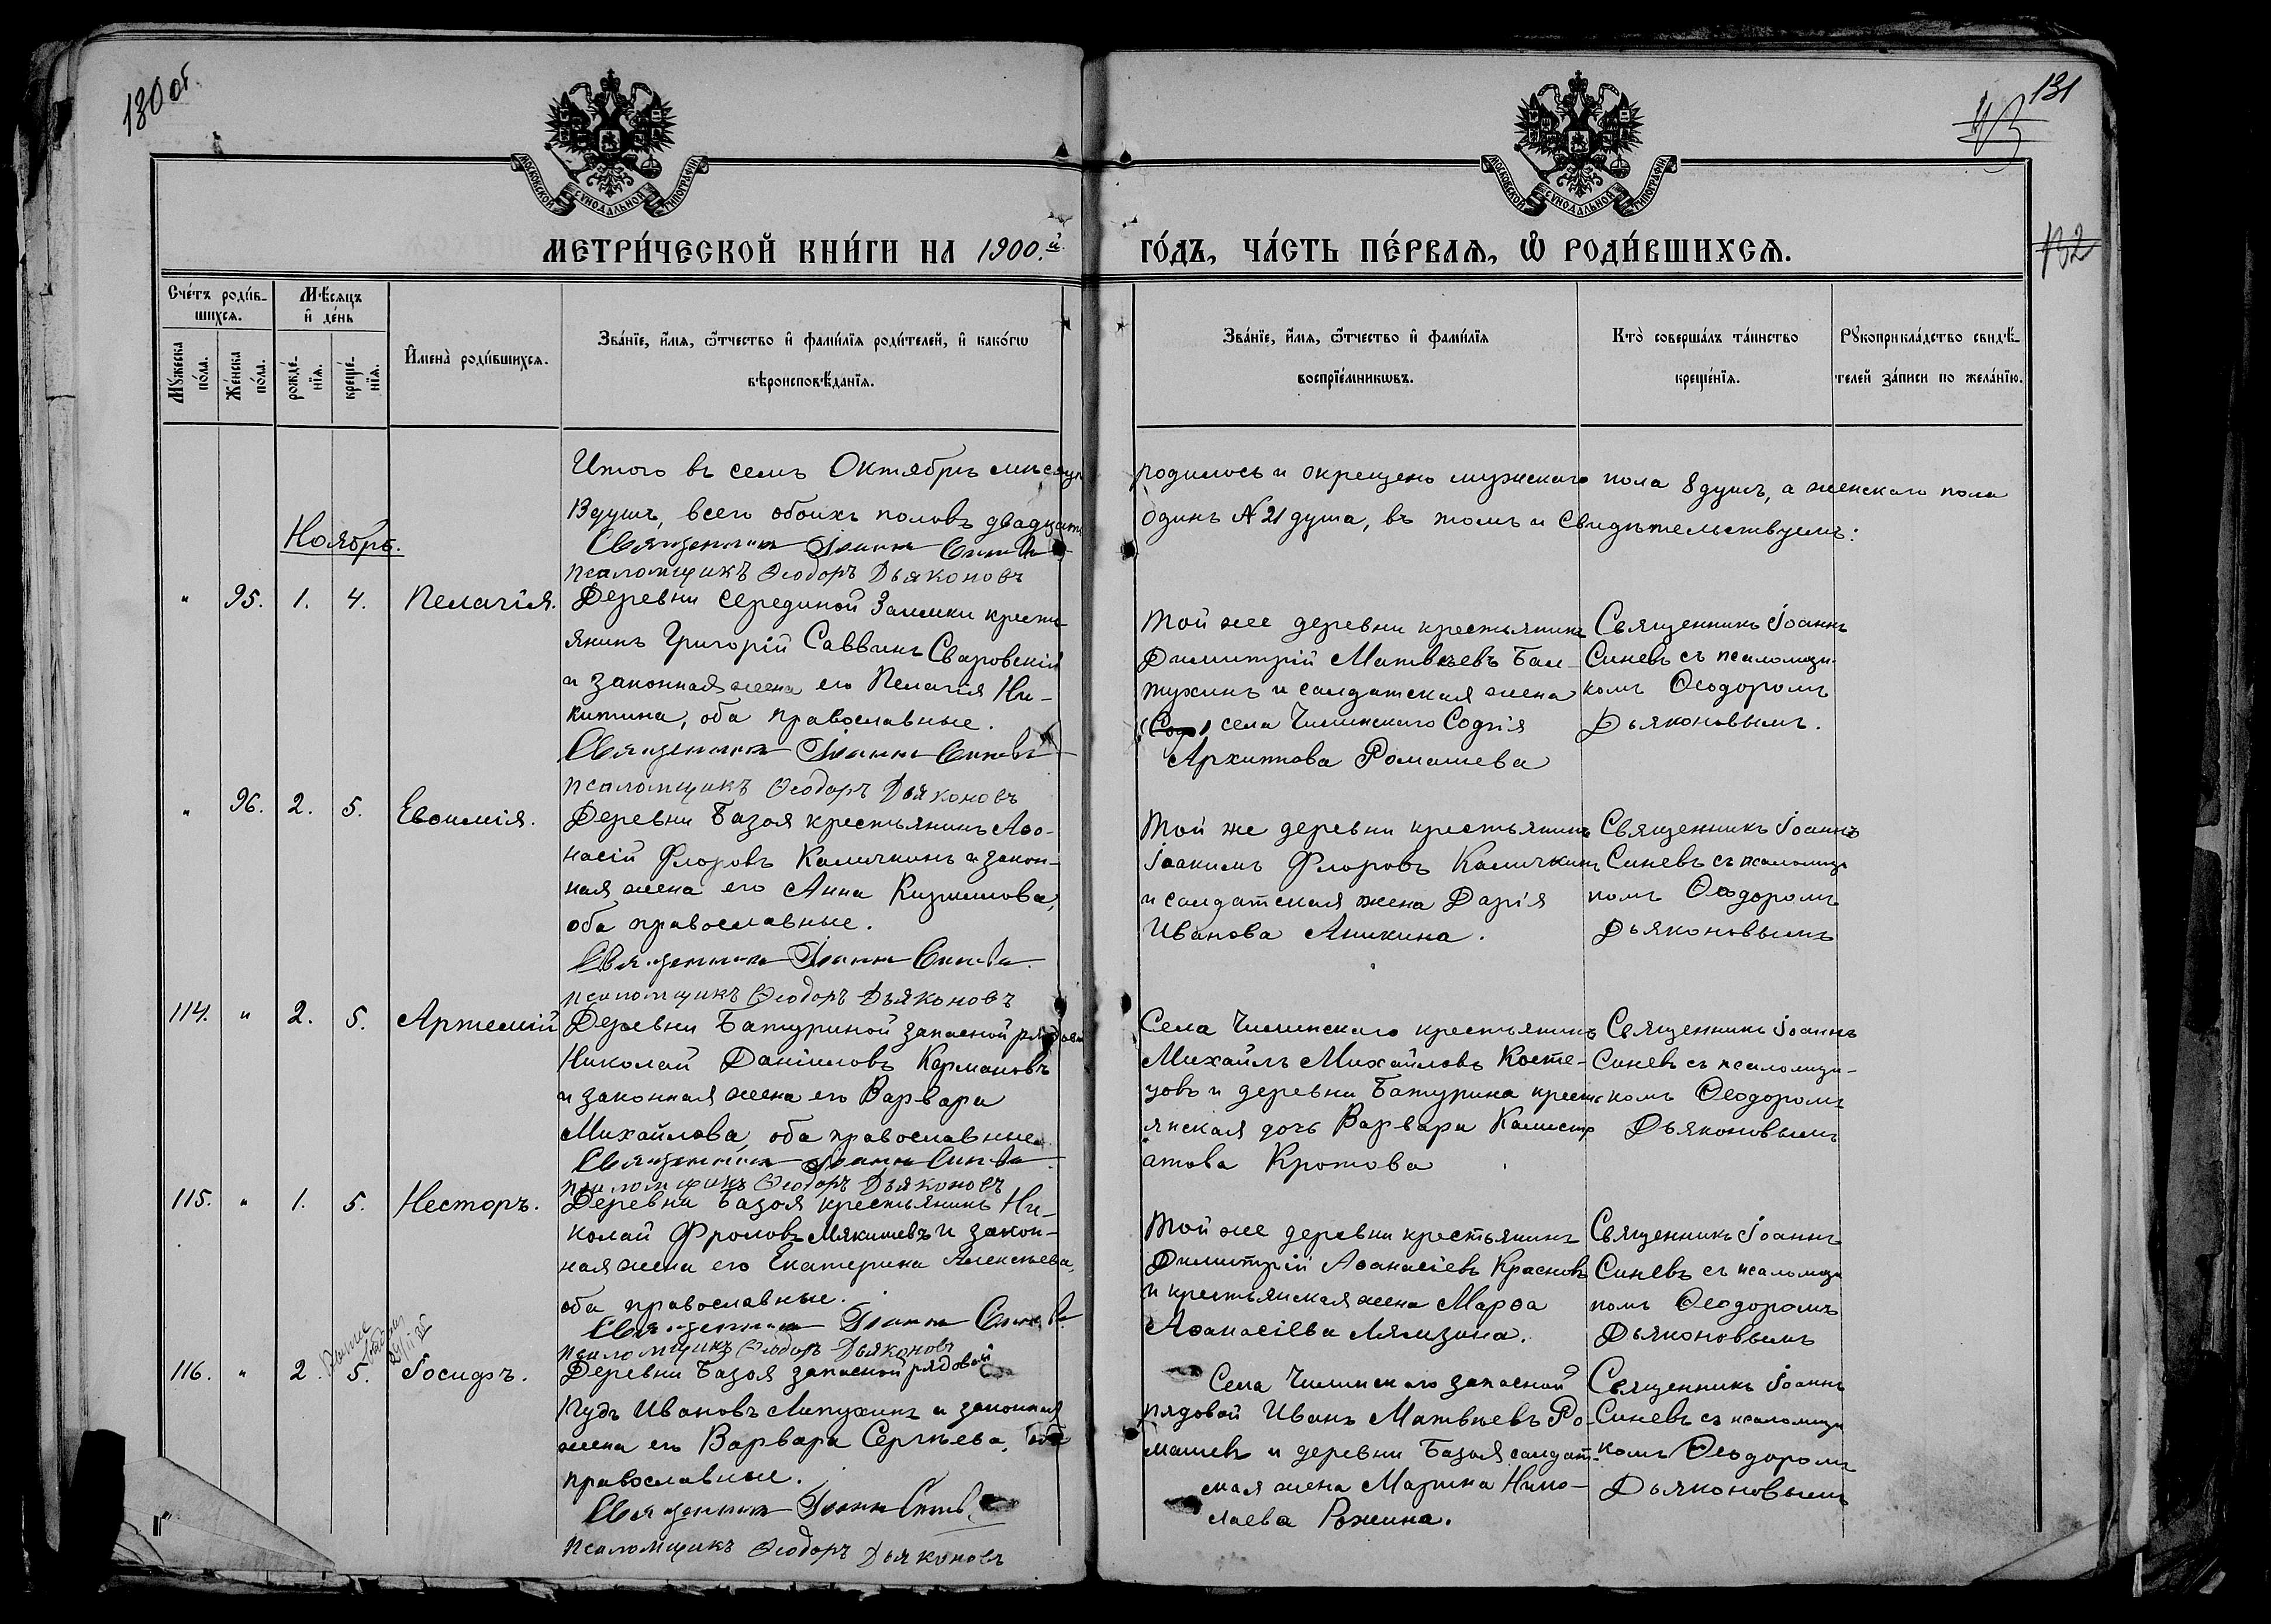 130 об
131
МОСКОВСКОЙ СѴНОДАЛЬНОЙ ТИПОГРАФІИ
МОСКОВСКОЙ СѴНОДАЛЬНОЙ ТИПОГРАФІИ
132
МЕТРИ́ЧЕСКОЙ КНИ́ГИ НА 1900.й
ГО́ДЪ, ЧА́СТЬ ПЕ́РВАѦ, Ѡ҆ РОДИ́ВШИХСѦ.
Сче́тъ роди́в-
шихсѧ.
Мѣ́сѧцъ
и҆ де́нь
Мꙋ́жеска
по́ла.
Же́нска
по́ла.
рожде́-
нїѧ.
креще́-
нїѧ.
И҆мена̀ роди́вшихсѧ.
Зва́нїе, и҆́мѧ, ѻ҆́тчество и҆ фами́лїѧ роди́телей, и҆ како́гѡ
вѣроисповѣ́данїѧ.
Зва́нїе, и҆́мѧ, ѻ҆́тчество и҆ фами́лїѧ
воспрїе́мникѡвъ.
Кто̀ соверша́лъ та́инство
креще́нїѧ.
Рꙋкоприкла́дство свидѣ́-
телей за́писи по жела́нїю.
Итого въ семъ Октябрѣ мѣсяцѣ
родилось и окрещено мужскаго пола 8 душъ, а женскаго пола
13 душъ, всего обоихъ половъ двадцать
одинъ № 21 душа, въ томъ и свидѣтельствуемъ:
Священникъ Іоаннъ Синевъ
Псаломщикъ Ѳеодоръ Дьяконовъ
Ноябрь.
" 95. 1. 4. Пелагія.
Деревни Серединой Заимки кресть-
янинъ Григорій Саввинъ Сваровскій
и законная жена его Пелагія Ни-
китина, оба православные.
Священникъ Іоаннъ Синевъ
Псаломщикъ Ѳеодоръ Дьяконовъ
Той же деревни крестьянинъ
Димитрій Матвѣевъ
и солдатская жена
(Соф) села Чилинскаго Софія
Архипова Ромашева
Священникъ Іоаннъ
Синевъ съ псаломщи-
комъ Ѳеодоромъ
Дьяконовымъ.
" 96. 2. 5. Евѳимія.
Деревни Базоя крестьянинъ Аѳа-
насій Флоровъ Каличкинъ и закон-
ная жена его Анна
оба православные.
Священникъ Іоаннъ Синевъ
Псаломщикъ Ѳеодоръ Дьяконовъ
Той же деревни крестьянинъ
Іоакимъ Флоровъ Каличкинъ
и солдатская жена Дарія
Иванова Аникина.
Священникъ Іоаннъ
Синевъ съ псаломщи
комъ Ѳеодоромъ
Дьяконовымъ
114. " 2. 5. Артемій
Деревни Батуриной запасной рядовой
Николай Даніиловъ Кармановъ
и законная жена его Варвара
Михайлова, оба православные.
Священникъ Іоаннъ Синевъ
Псаломщикъ Ѳеодоръ Дьяконовъ
Села Чилинскаго крестьянинъ
Михайлъ Михайловъ Косте-
цовъ и деревни Батурина кресть
янская дочь Варвара Калистр
атова Кротова
Священникъ Іоаннъ
Синевъ съ псаломщи-
комъ Ѳеодоромъ
Дьяконовымъ
115. " 1. 5. Несторъ.
Деревни Базоя крестьянинъ Ни-
колай Фроловъ Мякишевъ и закон-
ная жена его Екатерина Алексѣева,
оба православные.
Священникъ Іоаннъ Синевъ
Псаломщикъ Ѳеодоръ Дьяконовъ
Той же деревни крестьянинъ
Димитрій Аѳанасіевъ Красновъ
и крестьянская жена Марѳа
Аѳанасіева Лямзина.
Священникъ Іоаннъ
Синевъ съ псаломщи
комъ Ѳеодоромъ
Дьяконовымъ
116. " 2. 5. Іосифъ.
Деревни Базоя запасной рядовой
Іудъ Ивановъ Липухинъ и законная
жена его Варвара Сергѣева, оба
православные.
Священникъ Іоаннъ Синевъ
Псаломщикъ Ѳеодоръ Дьяконовъ
Села Чилинскаго запасной
рядовой Иванъ Матвѣевъ Ро-
машевъ и деревни Базоя солдат-
ская жена Марина Нико-
лаева Рожина.
Священникъ Іоаннъ
Синевъ съ псаломщи
комъ Ѳеодоромъ
Дьяконовымъ